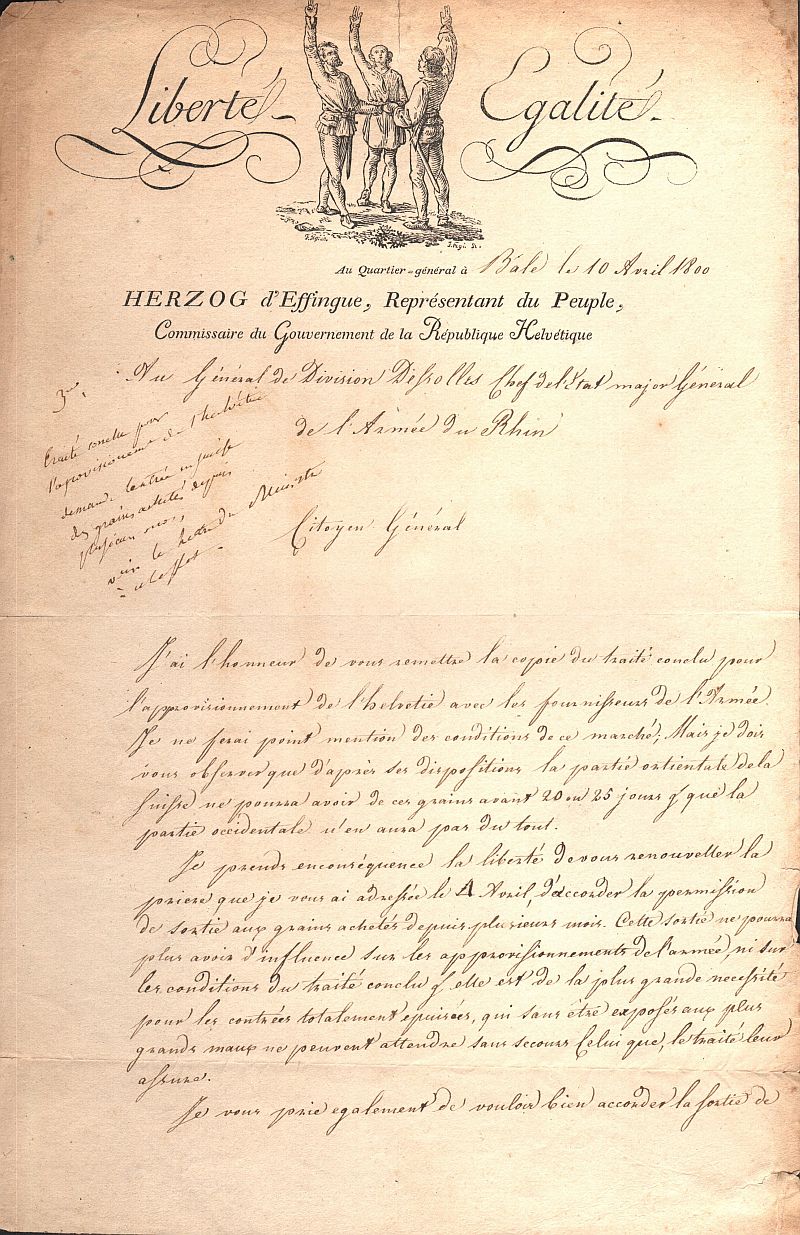 Liberté
Egalité
Au Quartier-général à Bâle le 10 Avril 1800
HERZOG d'Effingue, Représentant du Peuple,
Commissaire du Gouvernement de la République Helvétique
Au Général de Division Dessolles Chef de l'État major Général
de l'Armée du Rhin
3me.
traité conclu pour
l'aprovisionement de l'helvétie
demande l'entrée en suisse
des grains achetés depuis
plusieurs mois,
voir la lettre du Ministre
à cet effet
Citoyen Général
J'ai l'honneur de vous remettre la copie du traité conclu pour
l'approvisionnement de l'helvetie avec les fournisseurs de l'Armée.
Je ne ferai point mention des conditions de ce marché; Mais je dois
vous observer que d'après ses dispositions la partie orientale de la
Suisse ne pourra avoir de ces grains avant 20 ou 25 jours & que la
partie occidentale n'en aura pas du tout.
Je prends enconséquence la liberté de vous renouveller la
priere que je vous ai adressée le 4 Avril, d'accorder la permission
de sortie aux grains achetés depuis plusieurs mois. Cette sortie ne pourra
plus avoir d'influence sur les approvisionnements de l'armée, ni sur
les conditions du traité conclu & elle est de la plus grande necessité
pour les contrées totalement épuisées, qui sans être exposés aux plus
grands maux ne peuvent attendre sans secours Celui que, le traité leur
assure.
Je vous prie egalement de vouloir bien accorder la sortie de